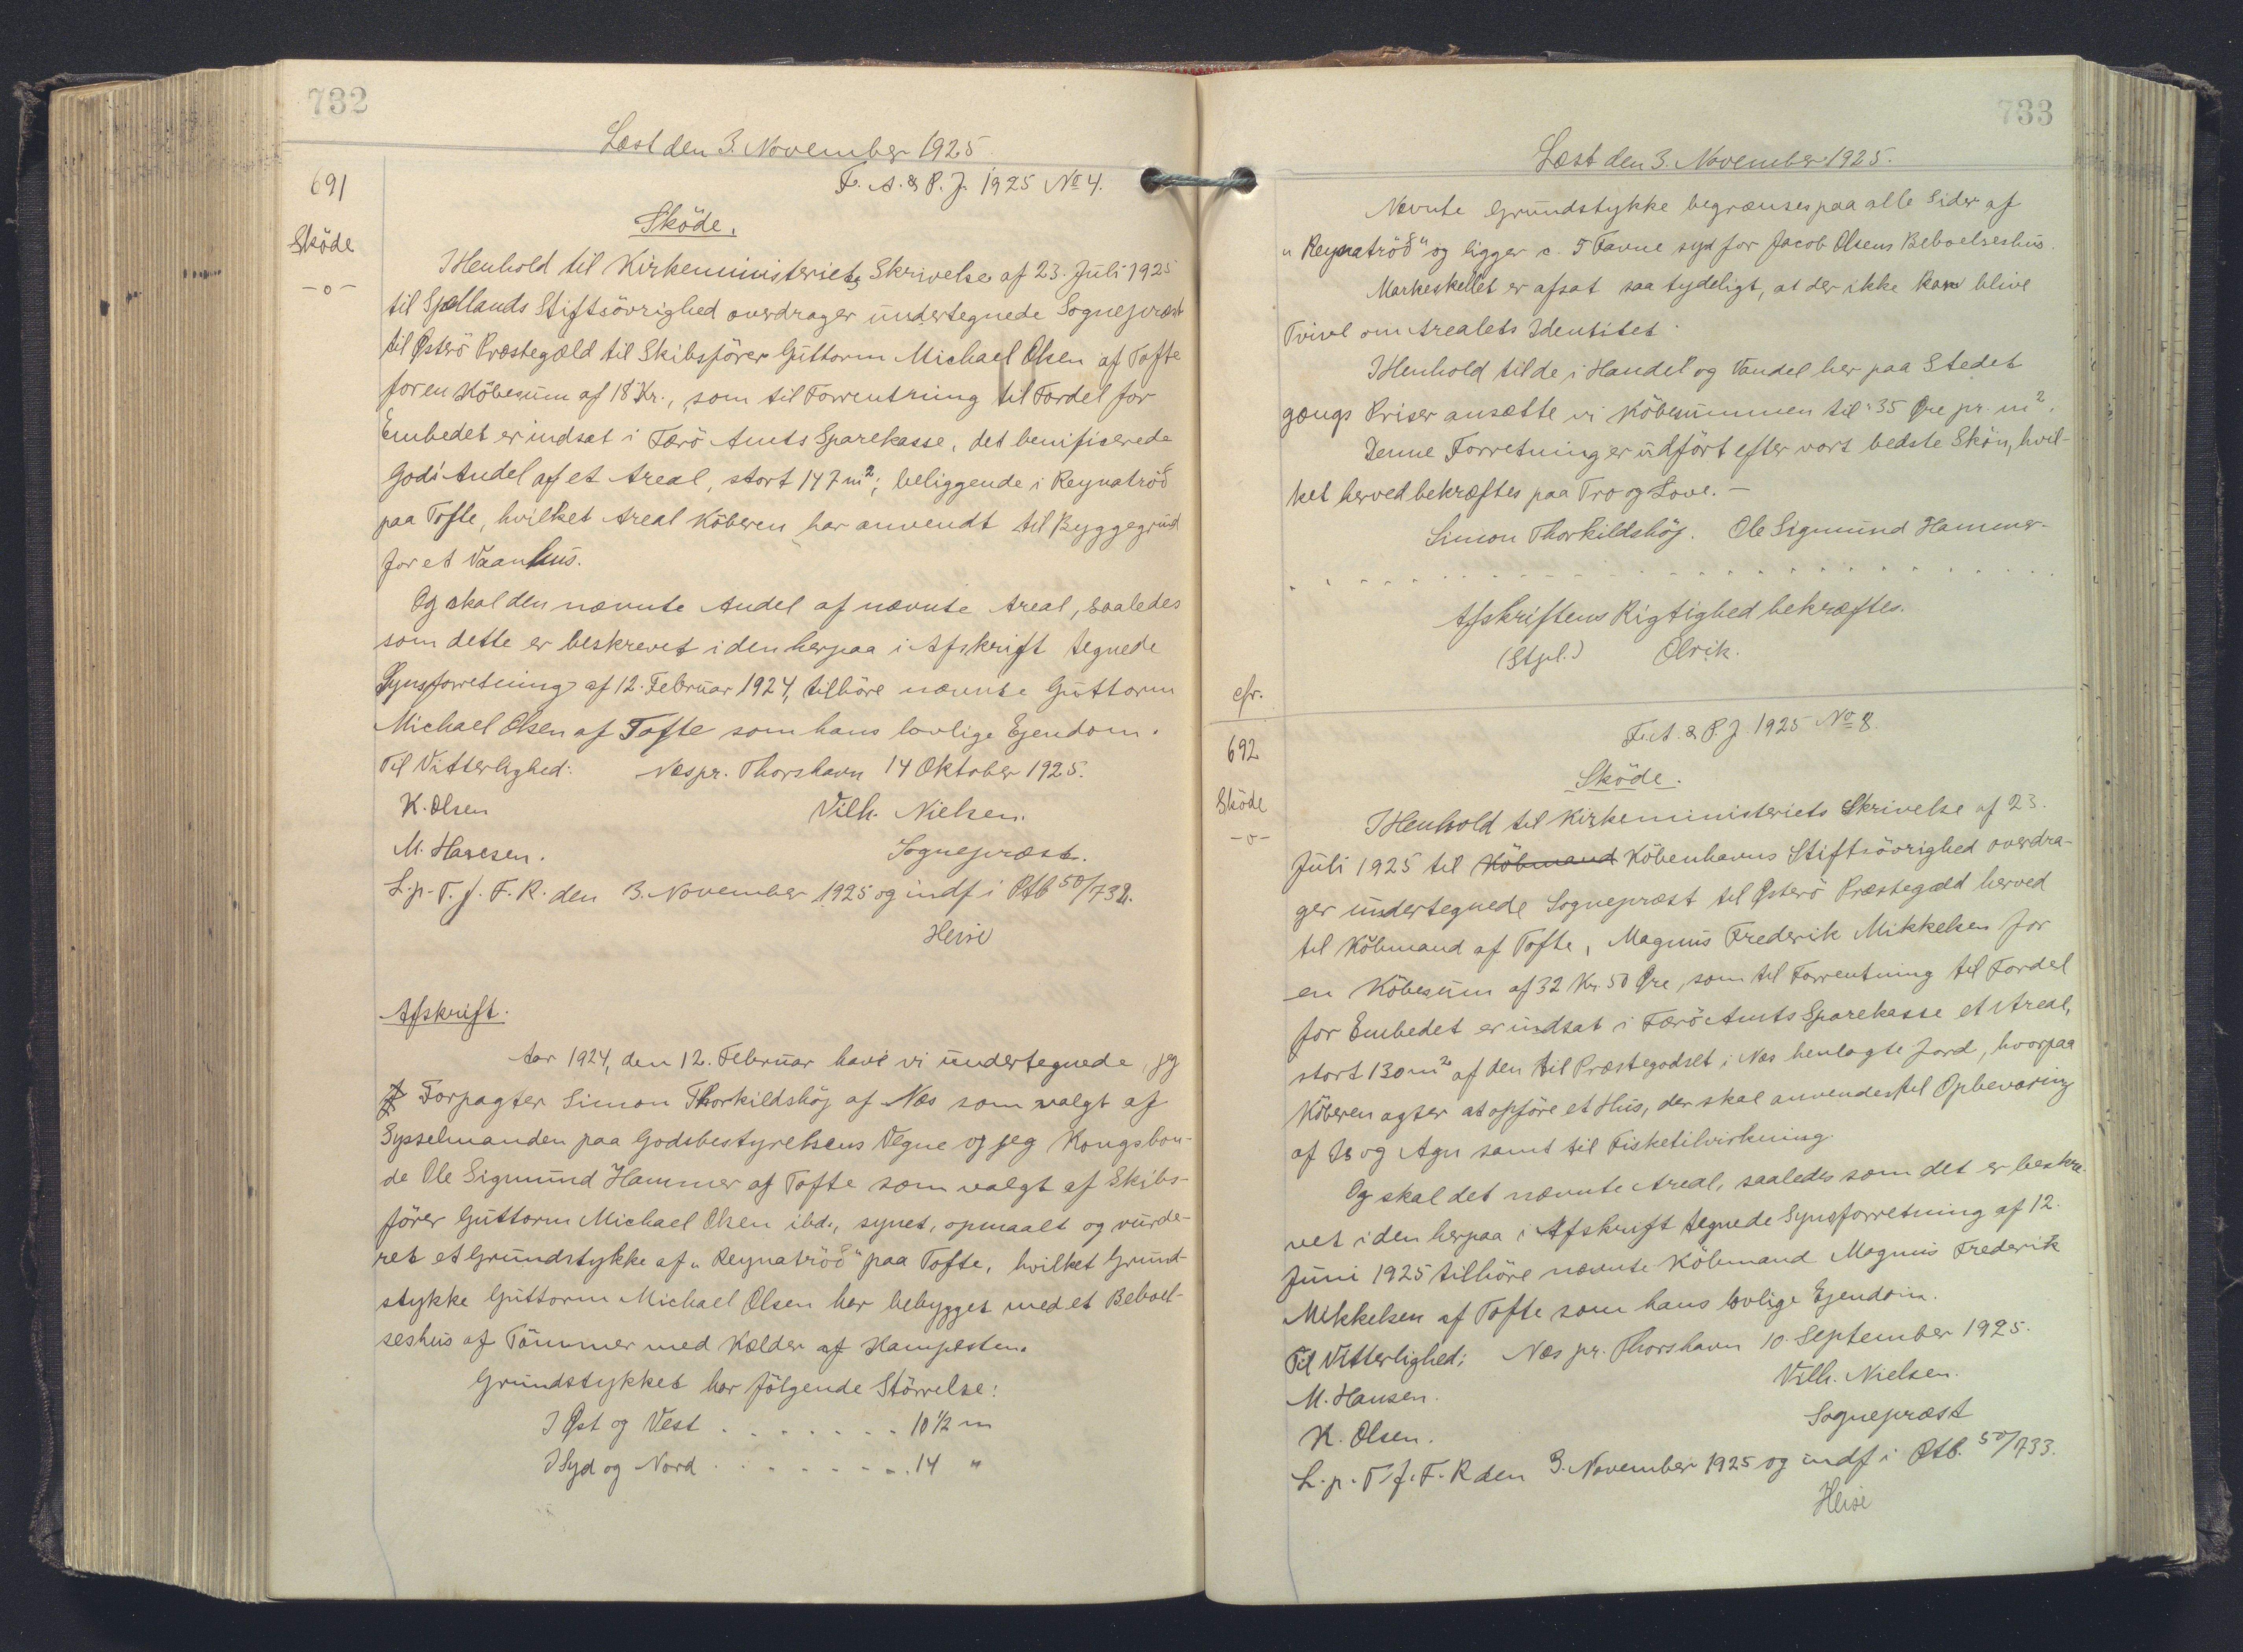 732
Læst den 3. November 1925
691
F. A. & P. J. 1925 No 4.
Sköde.
Sköde
-o-
I Henhold til Kirkeministeriets Skrivelse af 23. Juli 1925
til Sjællands Stiftsövrighed overdrager undertegnede Sognepræst
til Østerö Præstegæld til Skibsförer Guttorm Michael Olsen af Tofte
for en Köbesum af 18 Kr., som til Forrentning til Fordel for
Embedet er indsat i Færö Amts Sparekasse, det benificerede
Gods' Andel af et Areal, stort 147 m²; beliggende i Reynatröð
paa Tofte, hvilket Areal Köberen har anvendt til Byggegrund
for et Vaanhus.
Og skal den nævnte Andel af nævnte Areal, saaledes
som dette er beskrevet i den herpaa i Afskrift tegnede
Synsforretning af 12. Februar 1924, tilhöre nævnte Guttorm
Michael Olsen af Tofte som hans lovlige Ejendom.
Til Vitterlighed: Næs pr. Thorshavn 14 Oktober 1925.
K. Olsen Vilh. Nielsen.
M. Hansen. Sognepræst.
L. p. T. f. F. R. den 3. November 1925 og indf i Ptb 50/732.
Heise
Afskrift.
Aar 1924, den 12. Februar have vi undertegnede, jeg
Forpagter Simon Thorkildshöj af Næs som valgt af
Sysselmanden paa Godsbestyrelsens Vegne og jeg Kongsbon-
de Ole Sigmund Hammer af Tofte som valgt af Skibs-
förer Guttorm Michael Olsen ibd., synet, opmaalt og vurde-
ret et Grundstykke af "Reynatröð" paa Tofte, hvilket Grund-
stykke Guttorm Michael Olsen har bebygget med et Beboel-
seshus af Tömmer med Kælder af Hampesten.
Grundstykket har fölgende Störrelse:
I Øst og Vest . . . . . . . 10 1/2 m
I Syd og Nord . . . . . . . 14 "
733
Læst den 3. November 1925.
Nævnte Grundstykke begrænses paa alle Sider af
"Reynatröð" og ligger c. 5 Favne syd for Jacob Olsens Beboelseshus.
Markeskellet er afsat saa tydeligt, at der ikke kan blive
Tvivl om Arealets Identitet.
I Henhold til de i Handel og Vandel her paa Stedet
gængs Priser ansætte vi Köbesummen til 35 Øre pr. m².
Denne Forretning er udfört efter vort bedste Skön, hvil-
ket herved bekræftes paa Tro og Love. -
Simon Thorkildshöj. Ole Sigmund Hammer.
Afskriftens Rigtighed bekræftes.
(Stpl.) Olrik.
cfr.
692
F. A. & P. J. 1925 No 8.
Sköde.
Sköde
-o-
I Henhold til Kirkeministeriets Skrivelse af 23.
Juli 1925 til Köbmand Köbenhavns Stiftsövrighed overdra-
ger undertegnede Sognepræst til Østerö Præstegæld herved
til Köbmand af Tofte, Magnus Frederik Mikkelsen for
en Köbesum af 32 Kr. 50 Øre, som til Forrentning til Fordel
for Embedet er indsat i Færö Amts Sparekasse et Areal,
stort 130 m² af den til Præstegodset i Næs henlagte Jord, hvorpaa
Köberen agter at opföre et Hus, der skal anvendes til Opbevaring
af Is og Agn samt til Fisketilvirkning.
Og skal det nævnte Areal, saaledes som det er beskre-
vet i den herpaa i Afskrift tegnede Synsforretning af 12.
Juni 1925 tilhöre nævnte Köbmand Magnus Frederik
Mikkelsen af Tofte som hans lovlige Ejendom.
Til Vitterlighed: Næs pr. Thorshavn 10. September 1925.
M. Hansen. Vilh. Nielsen.
K. Olsen. Sognepræst
L. p. T. f. F. R den 3. November 1925 og indf i Ptb. 50/733.
Heise